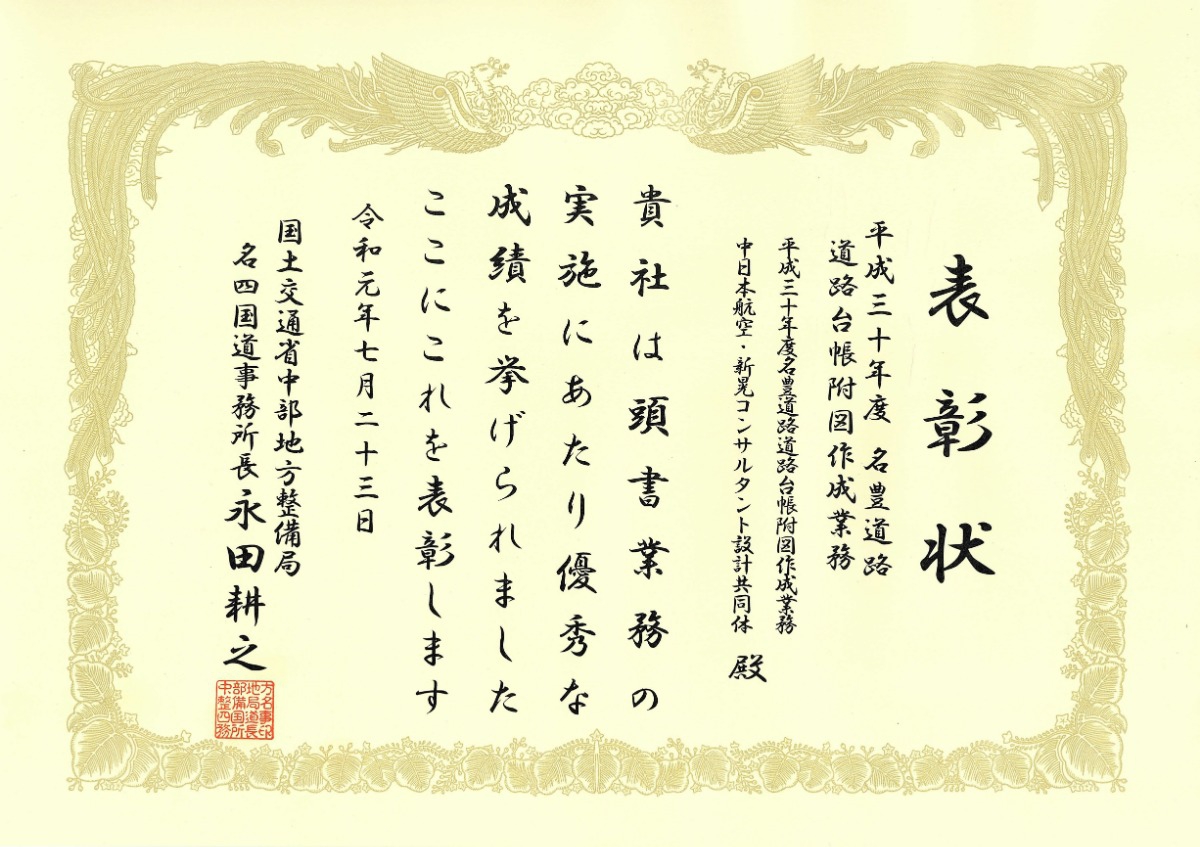 表彰状
平成三十年度 名豊道路
道路台帳附図作成業務
平成三十年度名豊道路道路台帳附図作成業務
中日本航空・新晃コンサルタント設計共同体 殿
貴社は頭書業務の
実施にあたり優秀な
成績を挙げられました
ここにこれを表彰します
令和元年七月二十三日
国土交通省中部地方整備局
名四国道事務所長 永田耕之
方名事印
地局道長
部備国所
中整四務